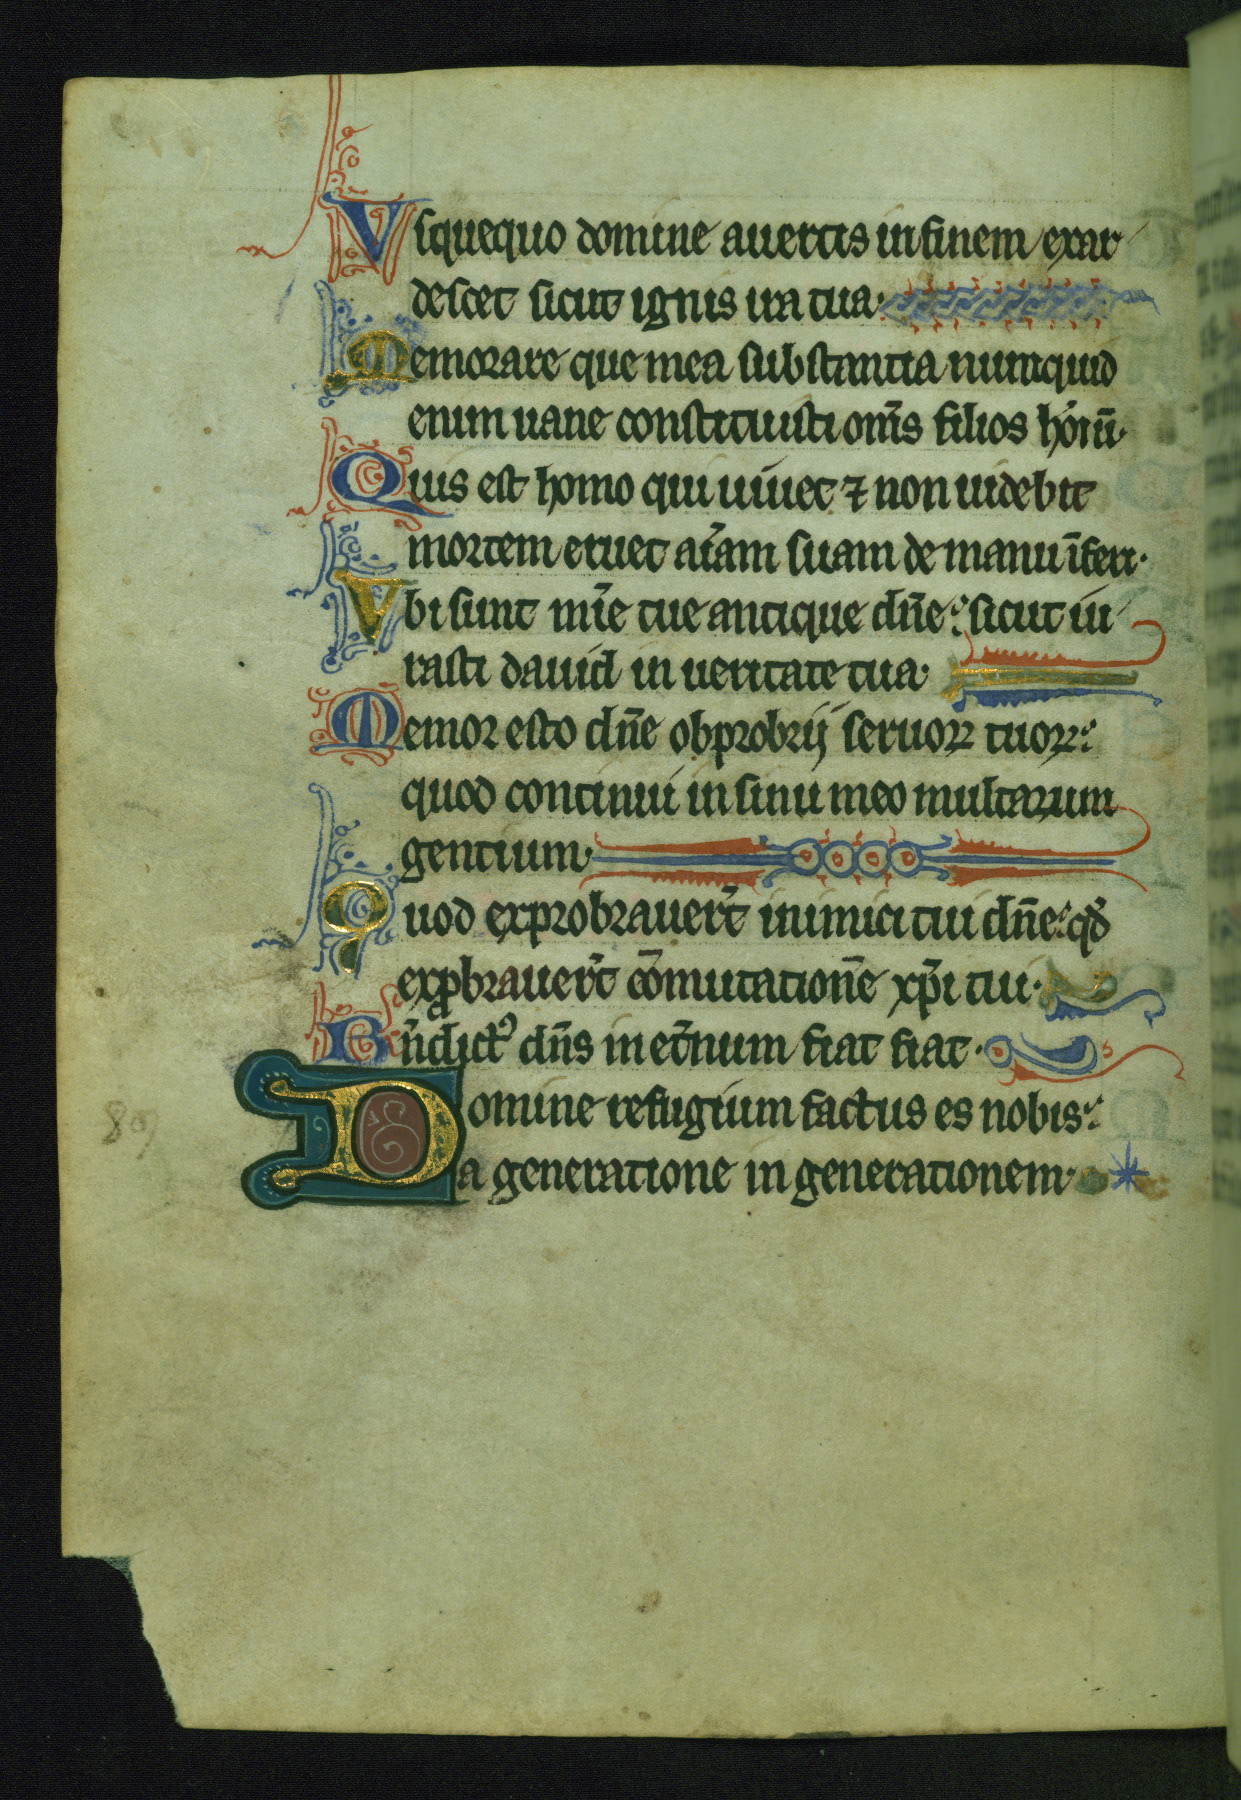 Vsquequo domine auertis in finem exar
descet sicut ignis ira tua.
Memorare que mea substantia nunquid
enim uane constituisti om̅s filios ho̅ru̅.
Quis est homo qui uiuet ⁊ non uidebit
mortem eruet ai̅am suam de manu i̅feri.
Vbi sunt mi̅e tue antique dn̅e: sicut iu
rasti dauid in ueritate tua.
Memor esto dn̅e obprobrij seruoꝝ tuoꝝ:
quod continui in sinu meo multarum
gentium.
Quod exprobrauer̅t inimici tui dn̅e: qd̅
exꝓbrauer̅t co̅mutation̅e xp̅i tui.
Bn̅dictꝰ dn̅s in et̅num fiat fiat.
Domine refugium factus es nobis:
a generatione in generationem.
89